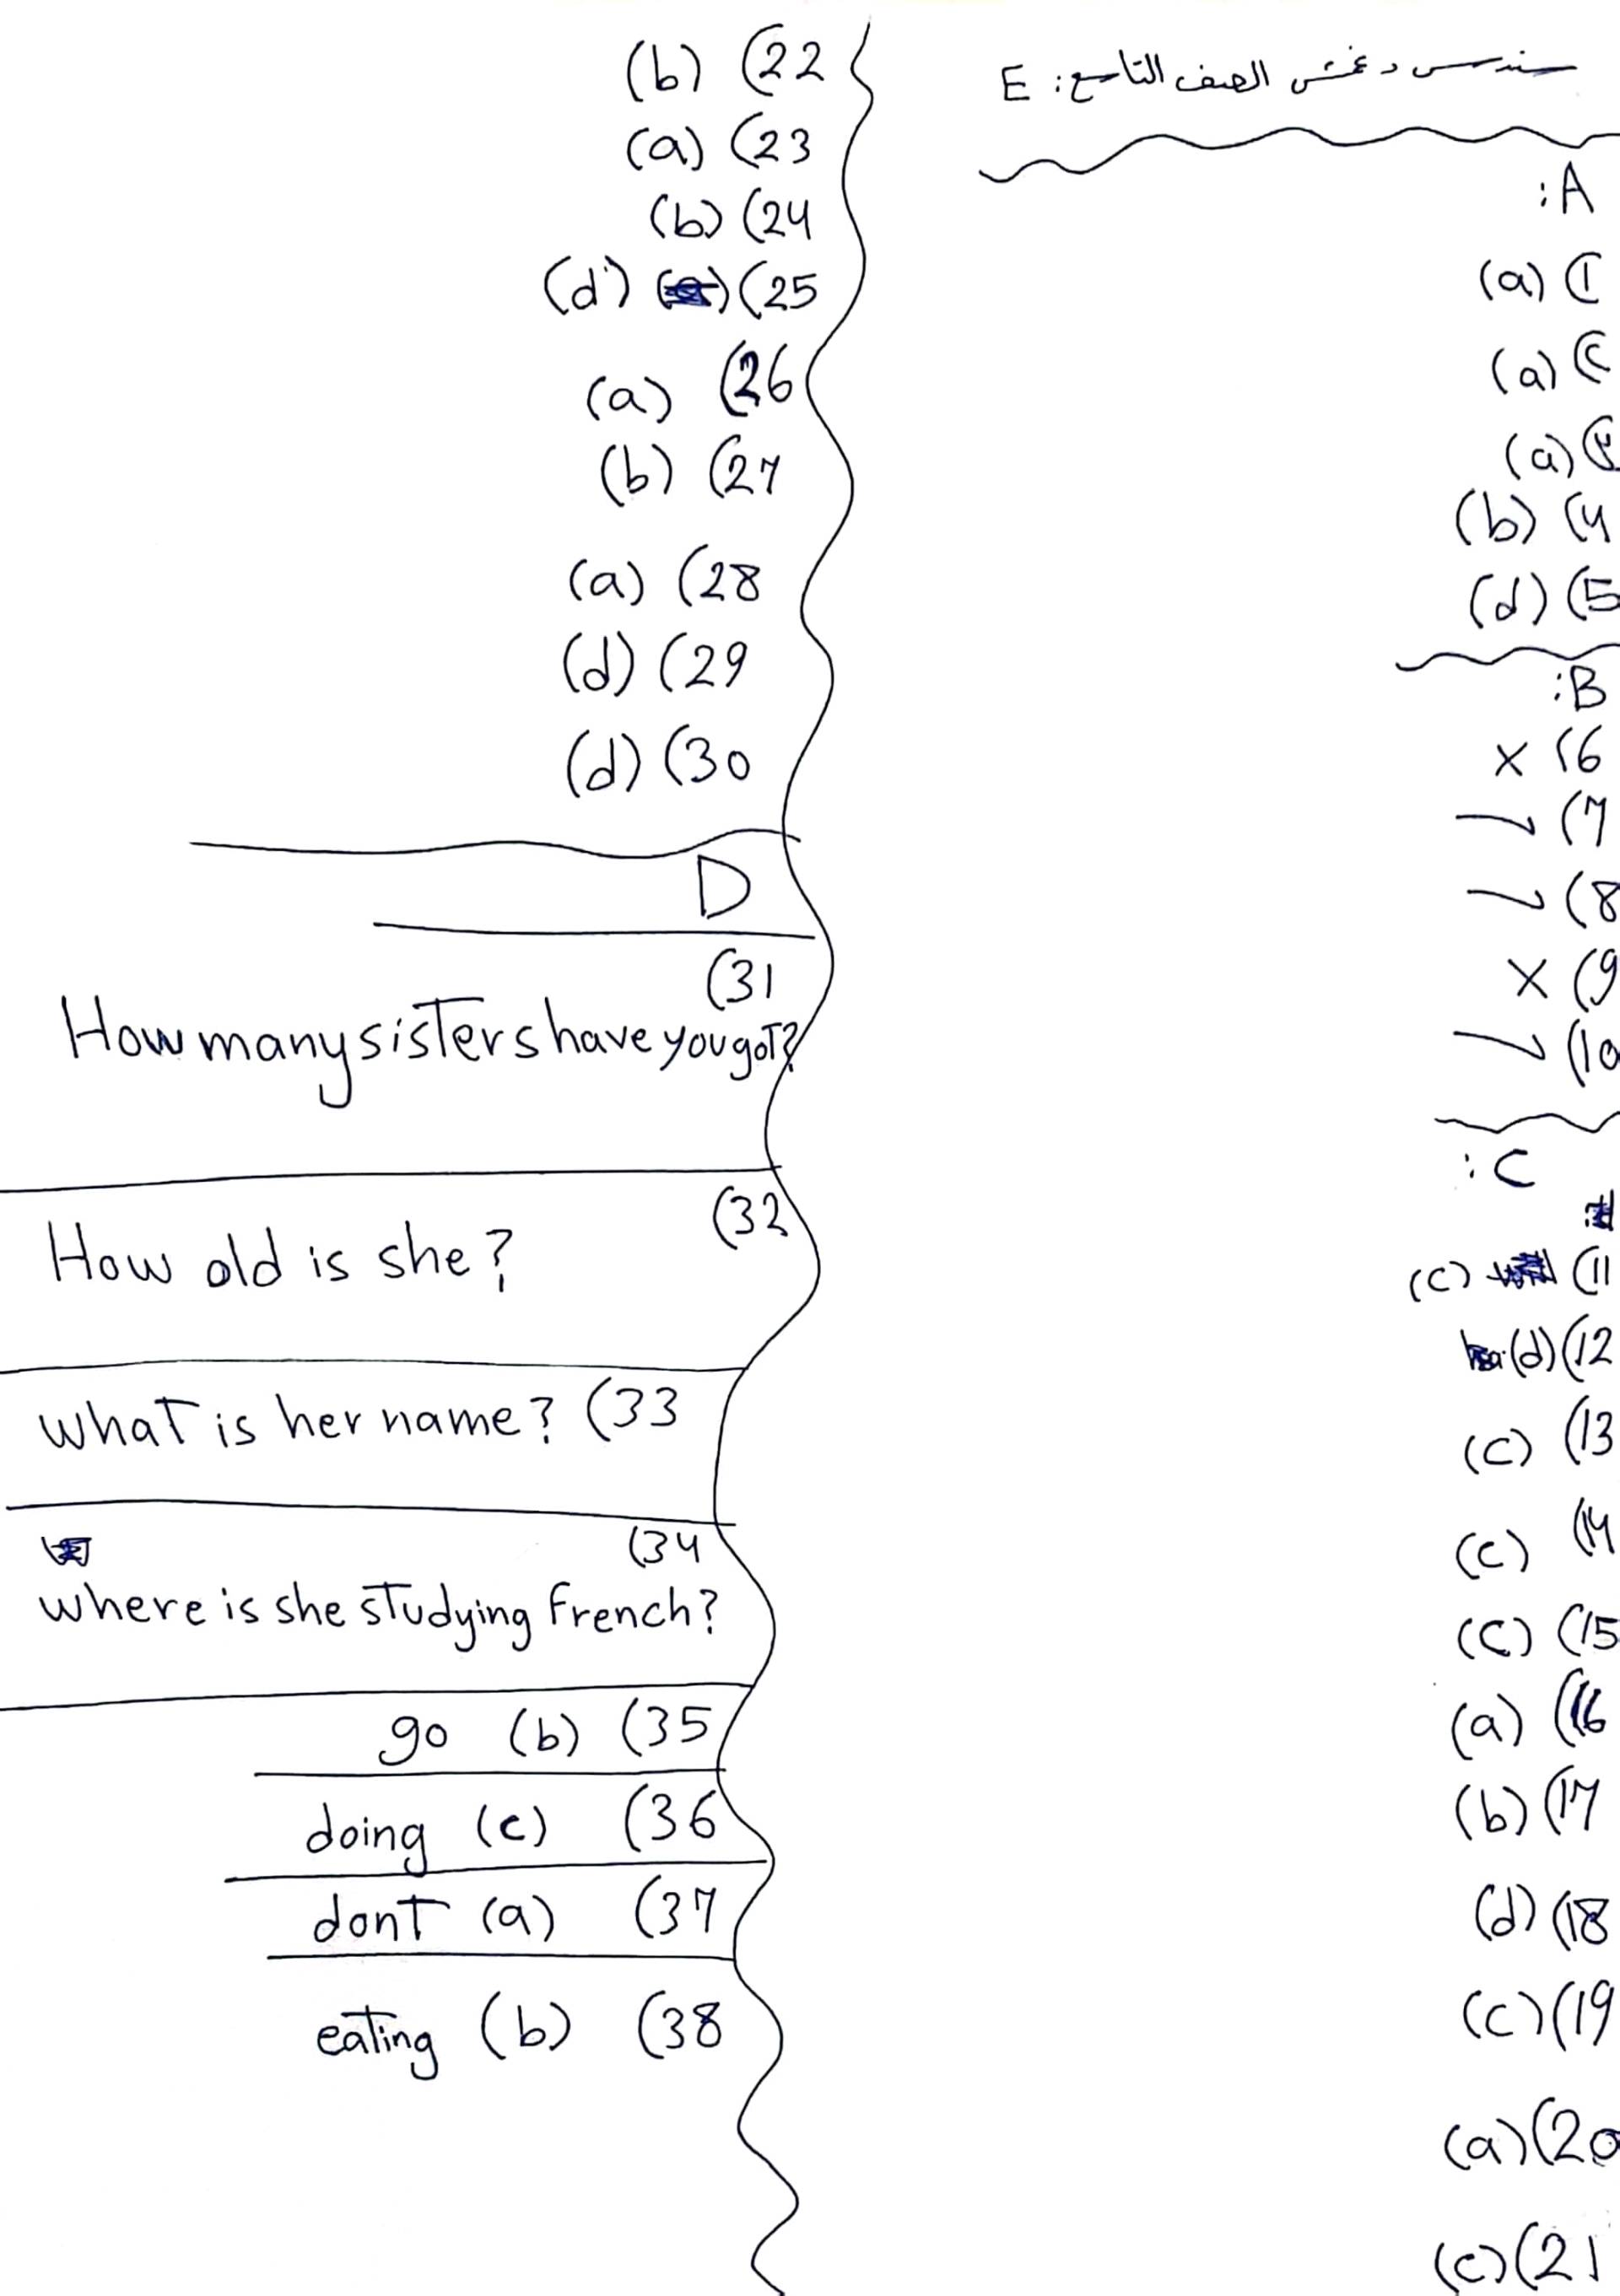 سندس دغمش الصف التاسع: E
A:
1) (a)
2) (a)
3) (a)
4) (b)
5) (d)
B:
6) X
7) ✓
8) ✓
9) X
10) ✓
C:
11) (c)
12) (d)
13) (c)
14) (c)
15) (c)
16) (a)
17) (b)
18) (d)
19) (c)
20) (a)
21) (c)
22) (b)
23) (a)
24) (b)
25) (d)
26) (a)
27) (b)
28) (a)
29) (d)
30) (d)
D
31)
How many sisters have you got?
32)
How old is she?
33) what is her name?
34)
where is she studying French?
35) (b) go
36) (c) doing
37) (a) dont
38) (b) eating